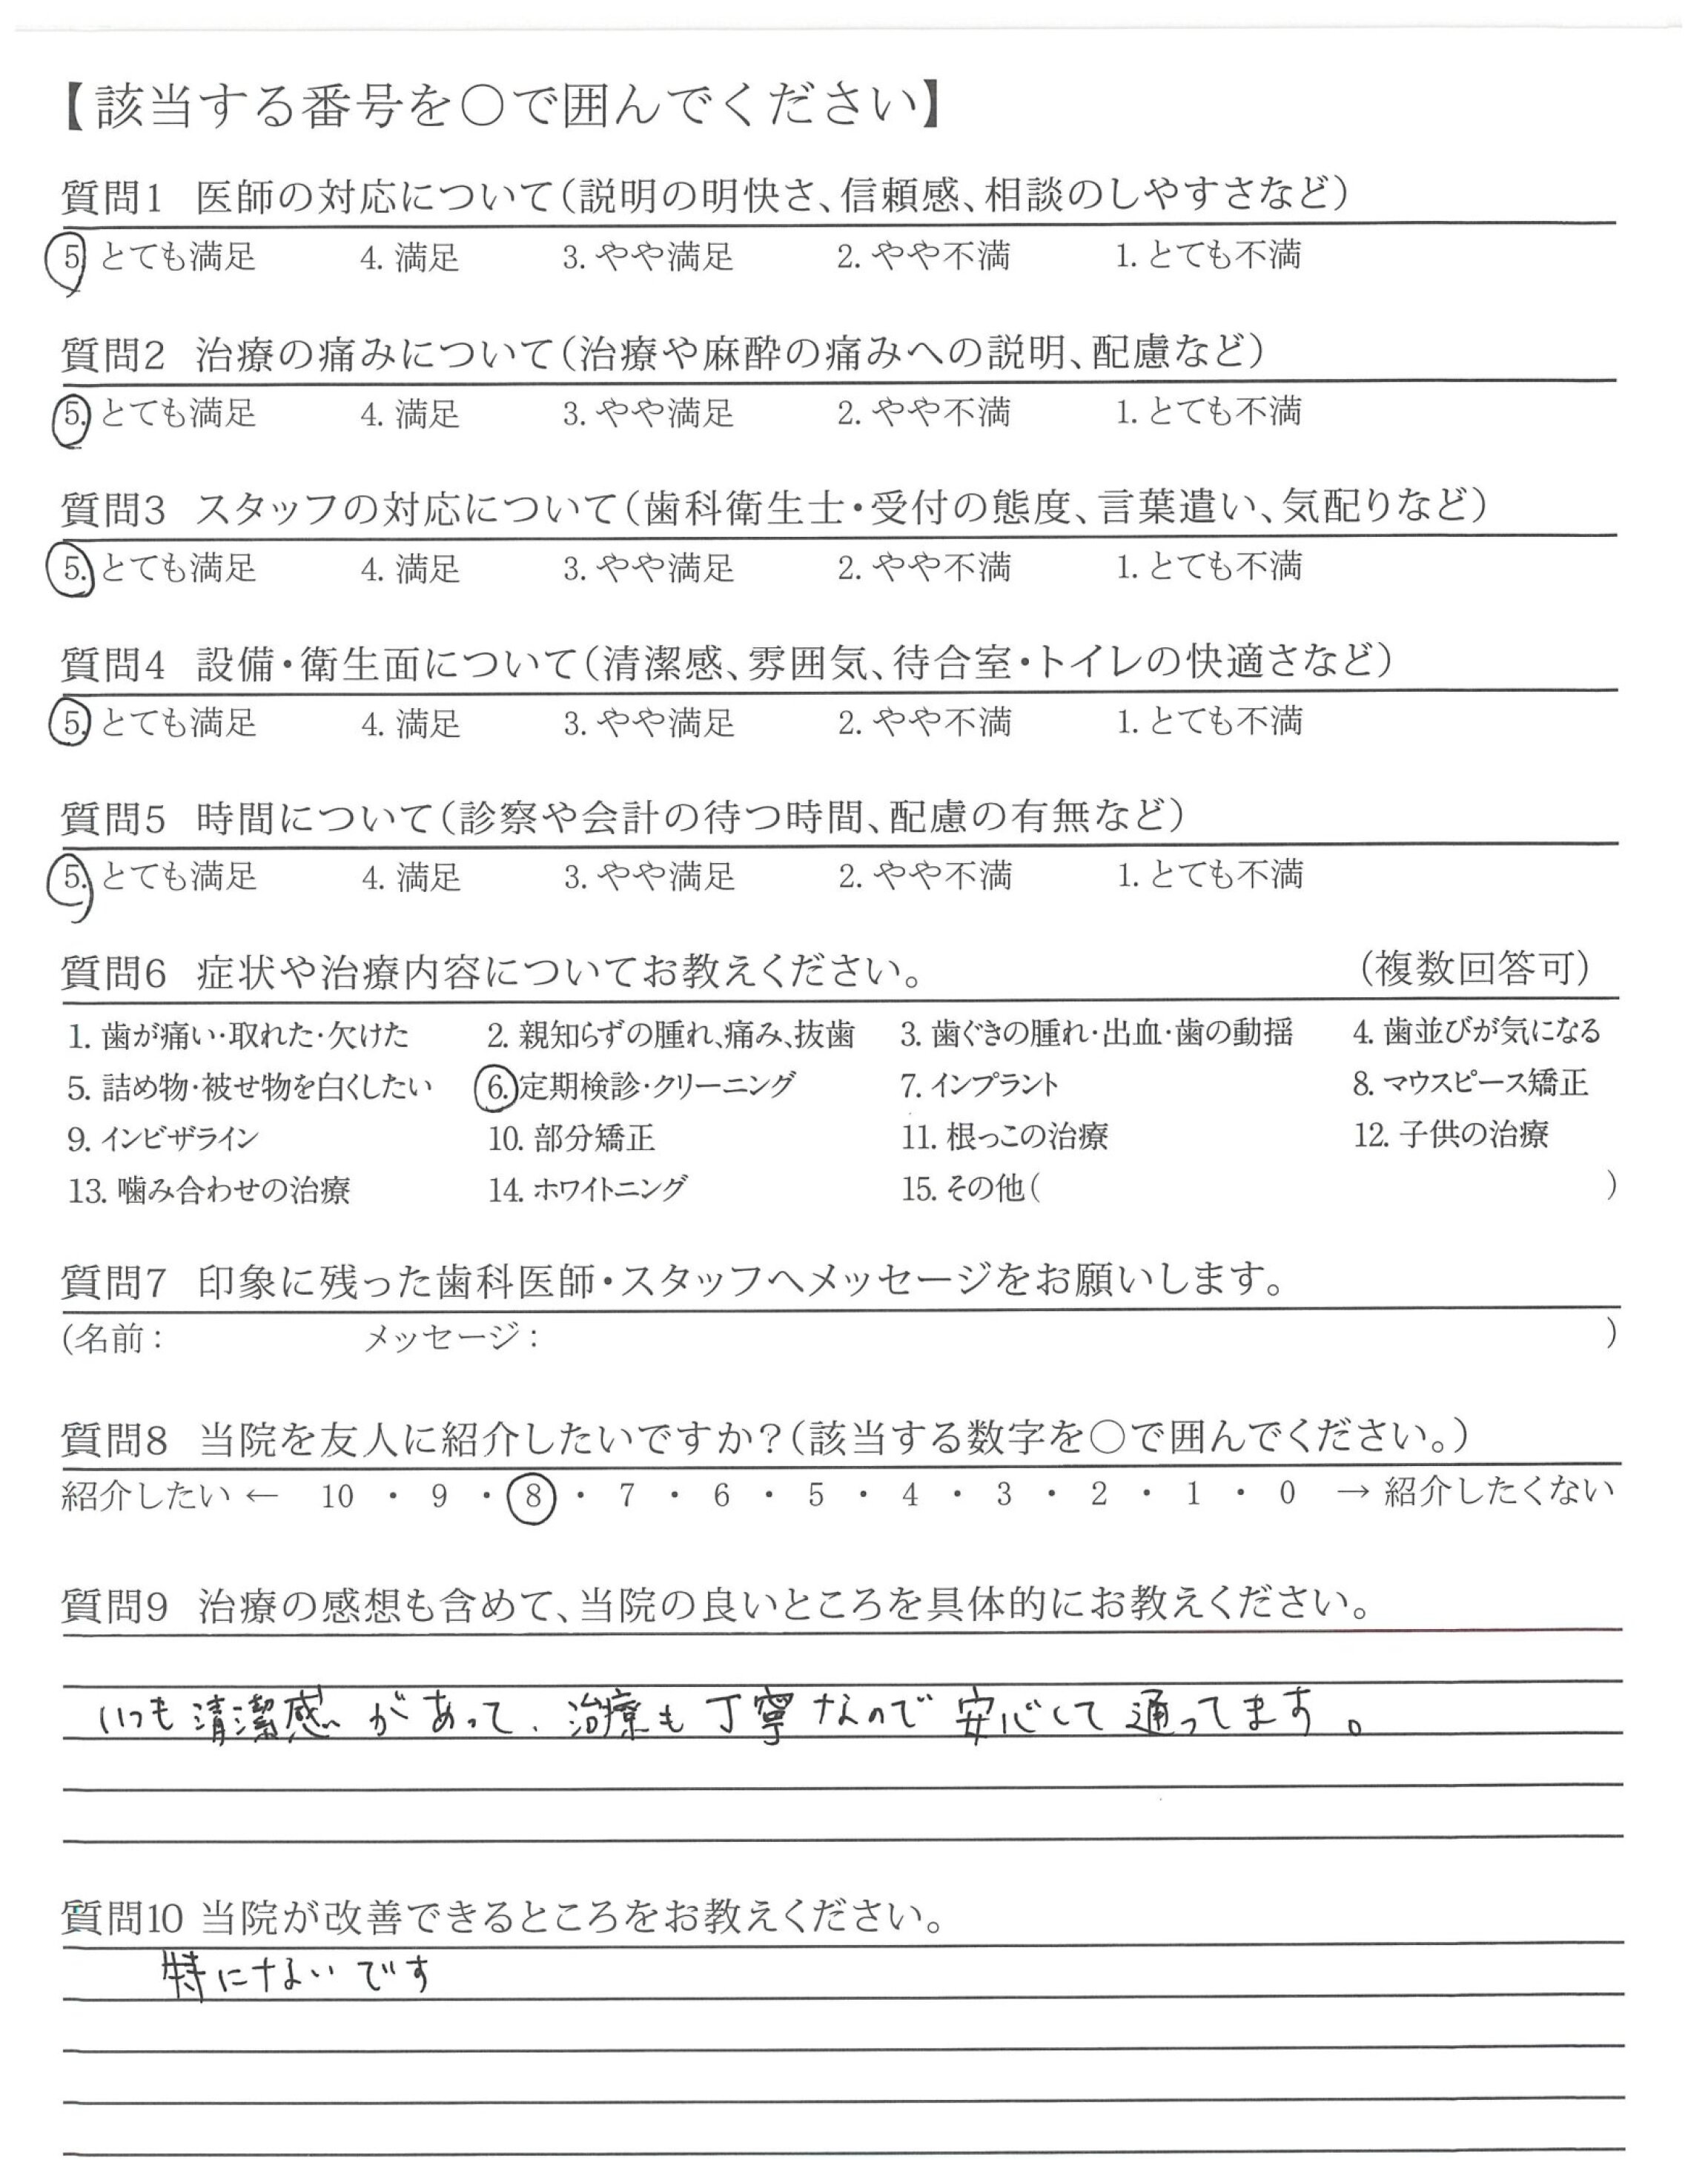 【該当する番号を〇で囲んでください】
質問1 医師の対応について(説明の明快さ、信頼感、相談のしやすさなど)
5 とても満足 4. 満足 3. やや満足 2. やや不満 1. とても不満
質問2 治療の痛みについて(治療や麻酔の痛みへの説明、配慮など)
5. とても満足 4. 満足 3. やや満足 2. やや不満 1. とても不満
質問3 スタッフの対応について(歯科衛生士・受付の態度、言葉遣い、気配りなど)
5. とても満足 4. 満足 3. やや満足 2. やや不満 1. とても不満
質問4 設備・衛生面について(清潔感、雰囲気、待合室・トイレの快適さなど)
5. とても満足 4. 満足 3. やや満足 2. やや不満 1. とても不満
質問5 時間について(診察や会計の待つ時間、配慮の有無など)
5. とても満足 4. 満足 3. やや満足 2. やや不満 1. とても不満
質問6 症状や治療内容についてお教えください。 (複数回答可)
1. 歯が痛い・取れた・欠けた 2. 親知らずの腫れ、痛み、抜歯 3. 歯ぐきの腫れ・出血・歯の動揺 4. 歯並びが気になる
5. 詰め物・被せ物を白くしたい 6. 定期検診・クリーニング 7. インプラント 8. マウスピース矯正
9. インビザライン 10. 部分矯正 11. 根っこの治療 12. 子供の治療
13. 噛み合わせの治療 14. ホワイトニング 15. その他( )
質問7 印象に残った歯科医師・スタッフへメッセージをお願いします。
(名前: メッセージ: )
質問8 当院を友人に紹介したいですか?(該当する数字を〇で囲んでください。)
紹介したい ← 10 ・ 9 ・ 8 ・ 7 ・ 6 ・ 5 ・ 4 ・ 3 ・ 2 ・ 1 ・ 0 → 紹介したくない
質問9 治療の感想も含めて、当院の良いところを具体的にお教えください。
いつも清潔感があって、治療も丁寧なので安心して通ってます。
質問10 当院が改善できるところをお教えください。
特にないです